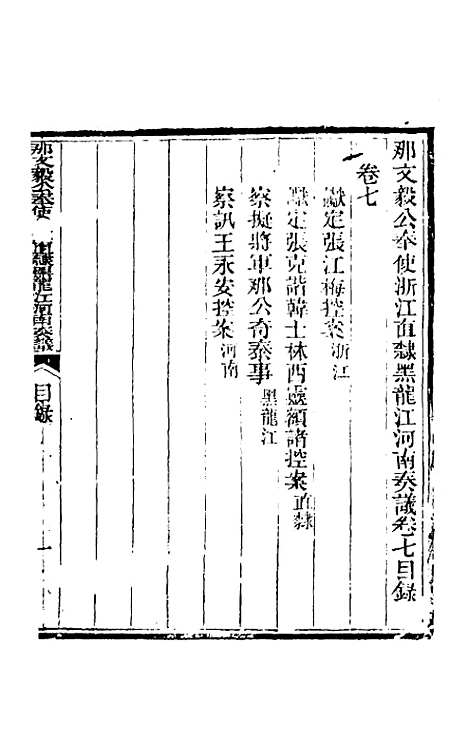 那文毅公奉使浙江直隸黑龍江河南奏議卷七目錄
卷七
讞定張江梅控案 浙江
讞定張克諧韓士林西凌額諸控案 直隸
察擬將軍那公奇泰事 黑龍江
察訊王永安控案 河南
那文毅公奉使浙江直隸黑龍江河南奏議
目錄
一